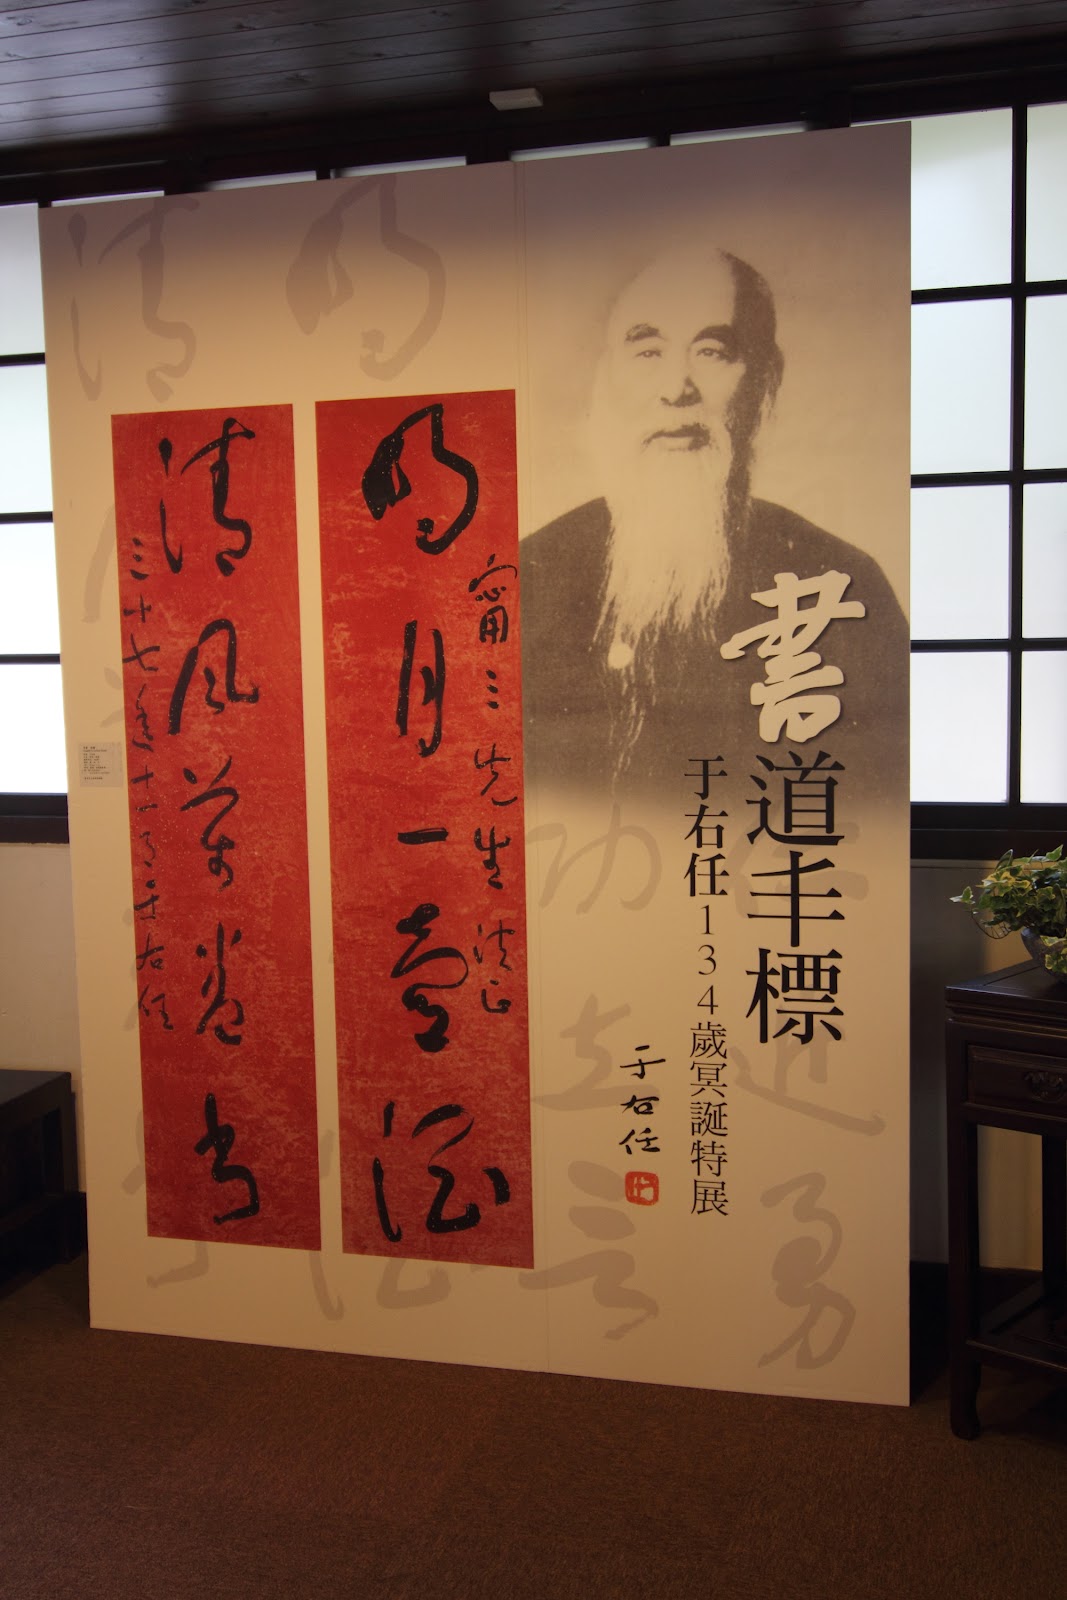 書道丰標
于右任134歲冥誕特展
于右任
甯三先生法正
明月一壺酒
清風萬卷書
三十七年十一月于右任